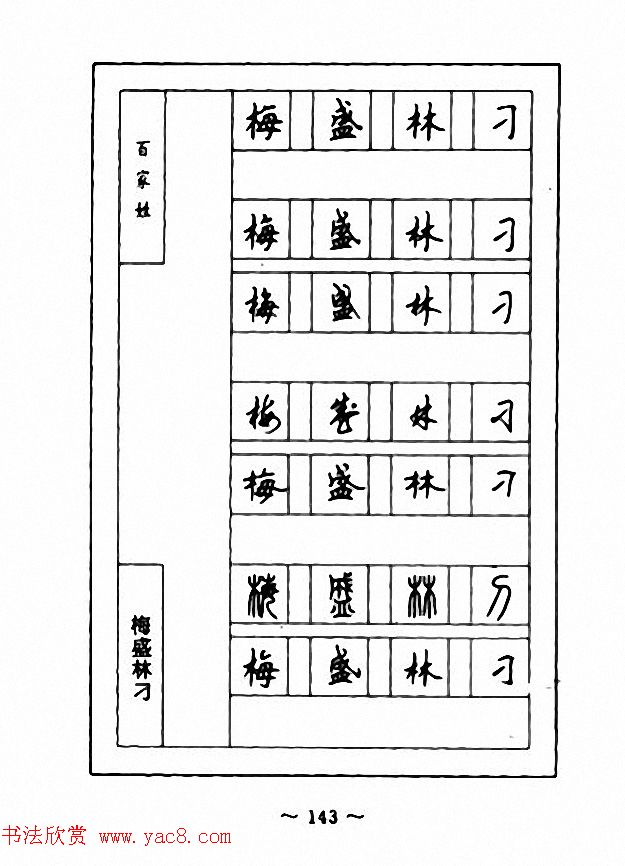 百家姓
梅 盛 林 刁
梅 盛 林 刁
梅 盛 林 刁
梅 盛 林 刁
梅 盛 林 刁
梅 盛 林 刁
梅 盛 林 刁
梅盛林刁
~ 143 ~
书法欣赏 www.yac8.com